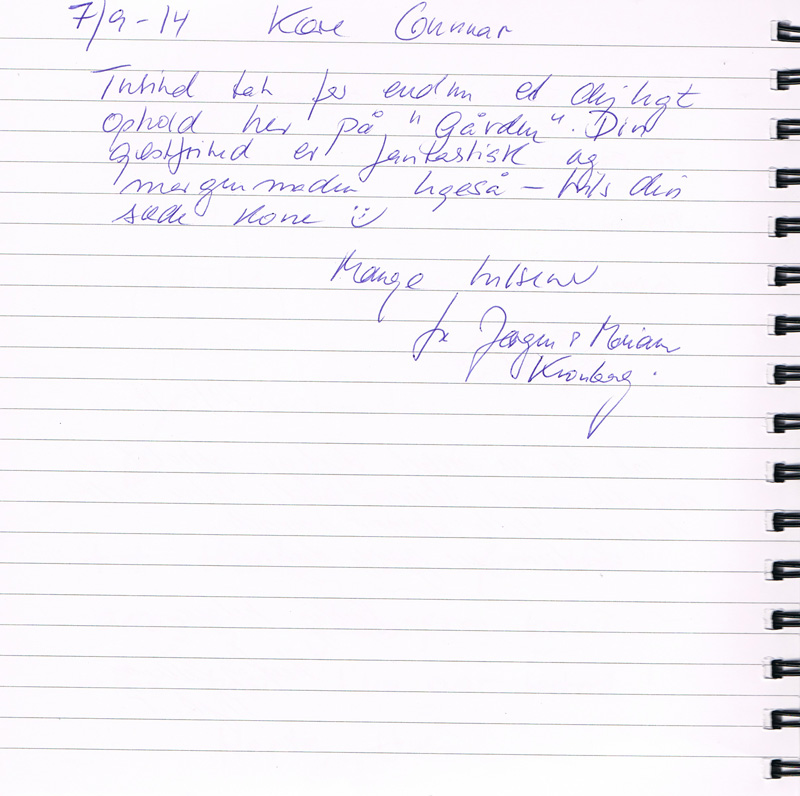 7/9-14 Kære Gunnar
Tusind tak for endnu et dejligt
ophold her på "Gården". Din
gæstfrihed er fantastisk og
morgenmaden ligeså - hils din
søde kone
Mange hilsner
fra Jørgen & Mariann
Kronborg.